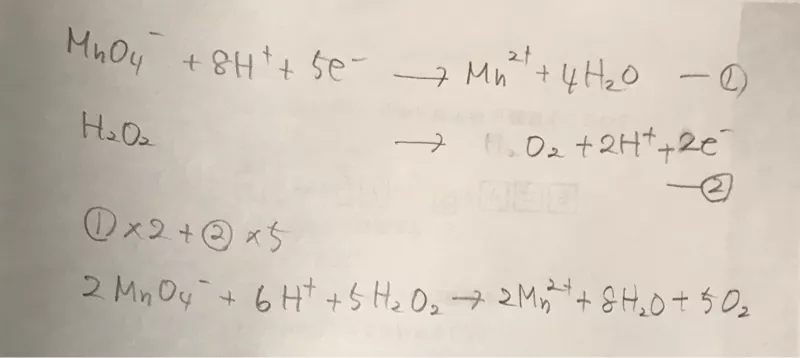 MnO₄⁻ + 8H⁺ + 5e⁻ → Mn²⁺ + 4H₂O —①
H₂O₂ → O₂ + 2H⁺ + 2e⁻
—②
①×2 + ②×5
2MnO₄⁻ + 6H⁺ + 5H₂O₂ → 2Mn²⁺ + 8H₂O + 5O₂